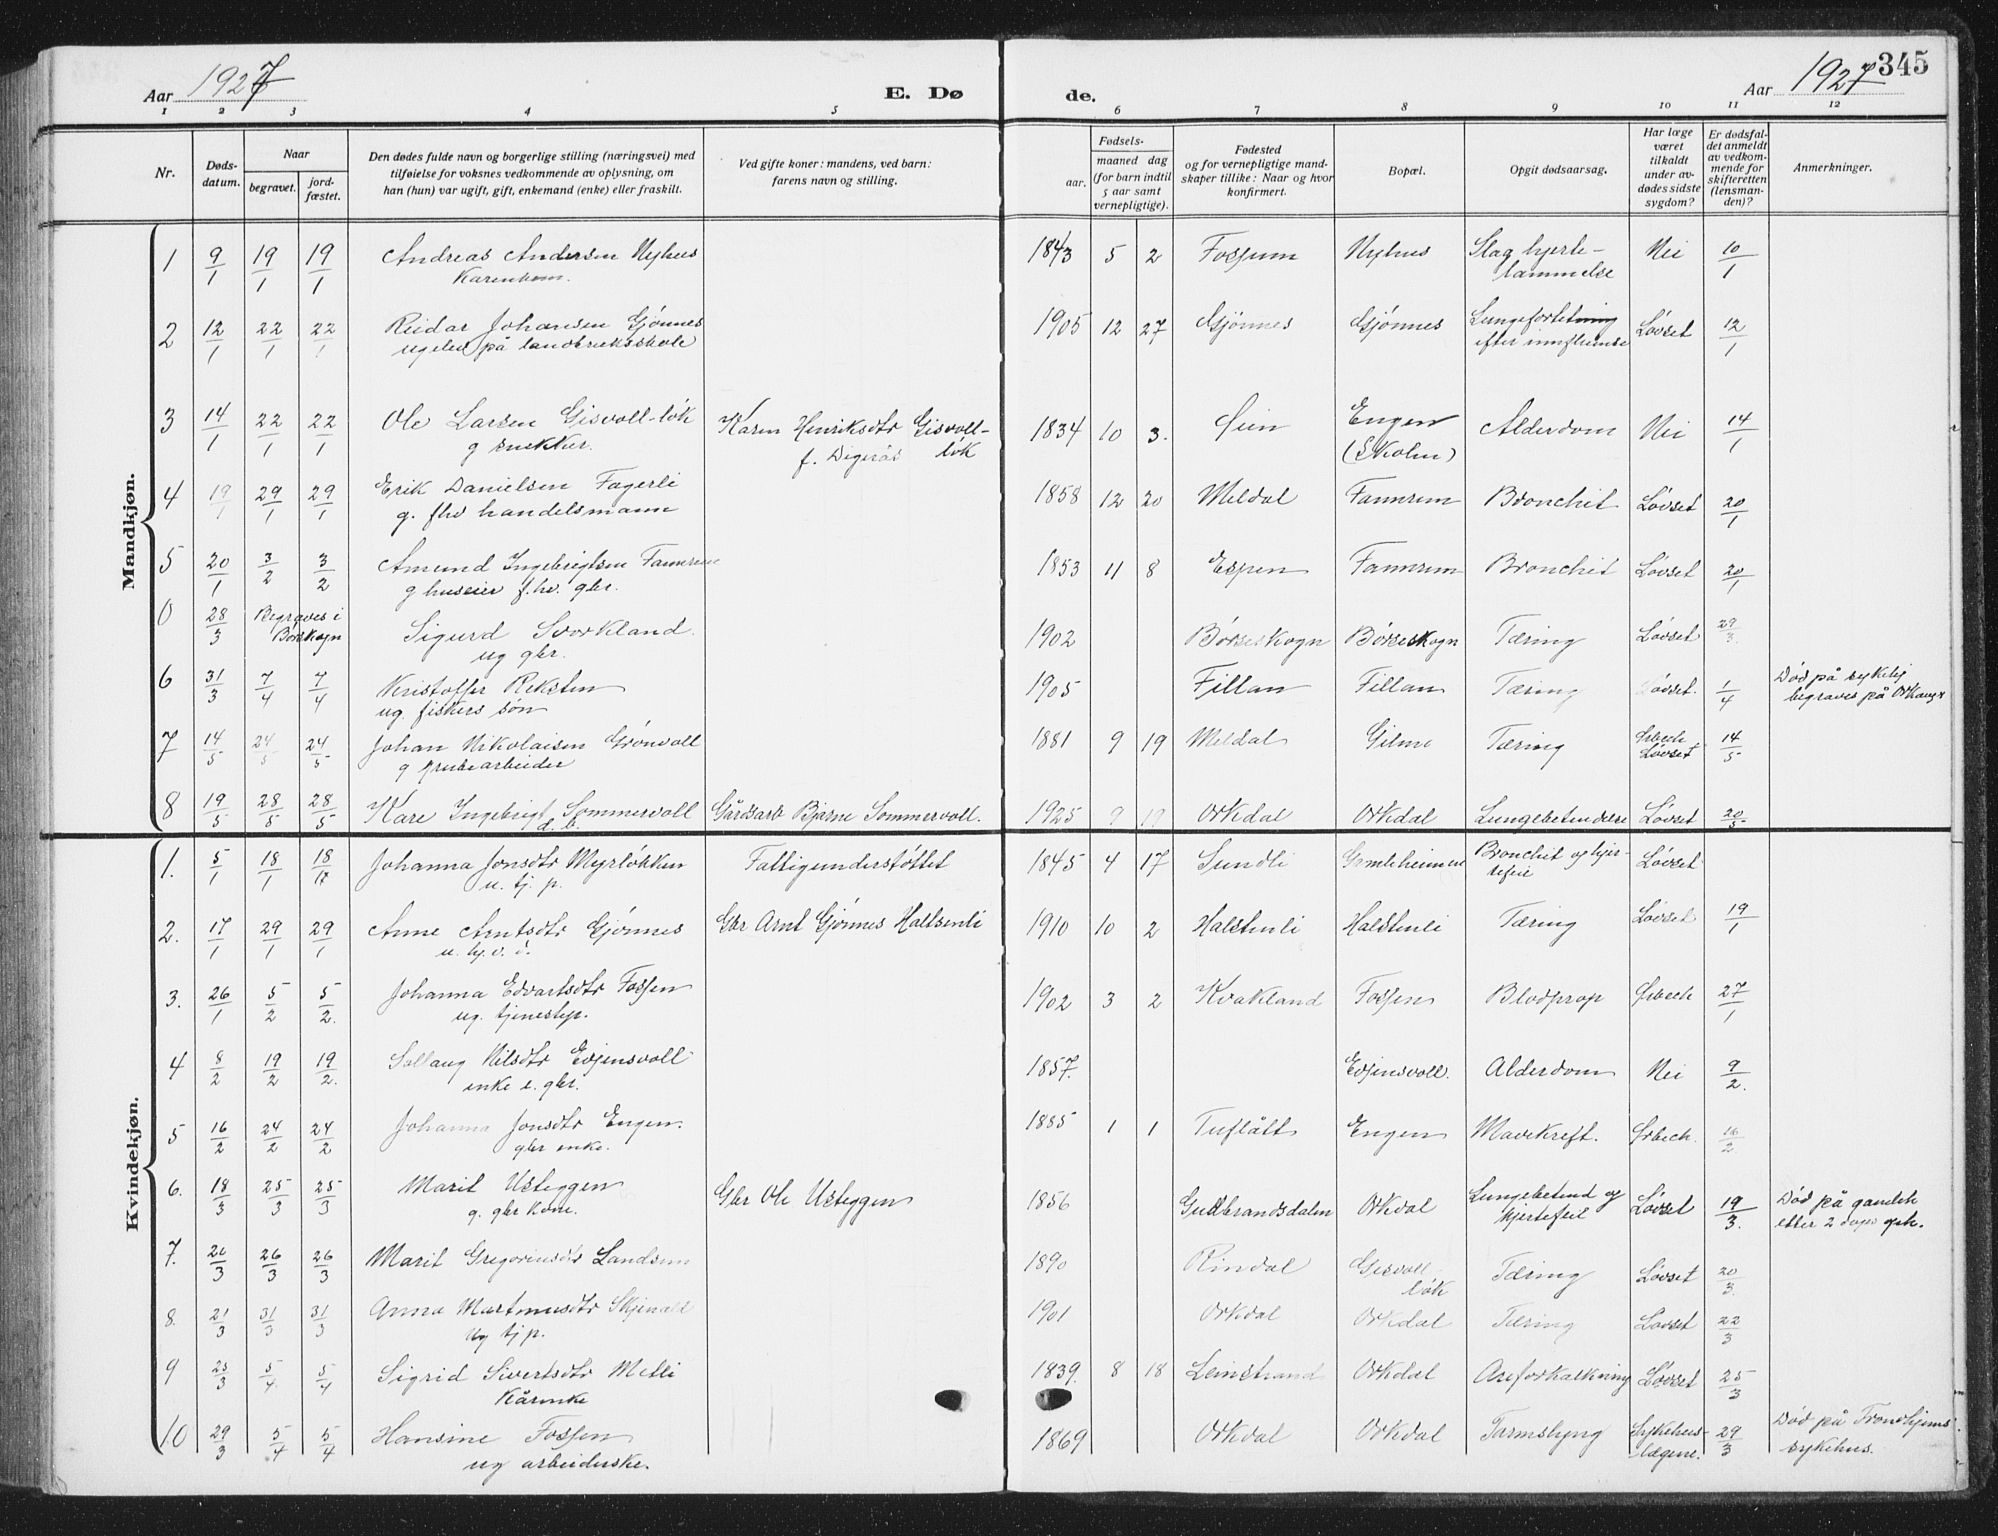 Aar 1927
E. Dø
de.
Aar 1927
345
1 2 3 4 5 6 7 8 9 10 11 12
Nr.
Døds-
datum.
Naar
begravet.
jord-
fæstet.
Den dødes fulde navn og borgerlige stilling (næringsvei) med
tilføielse for voksnes vedkommende av oplysning, om
han (hun) var ugift, gift, enkemand (enke) eller fraskilt.
Ved gifte koner: mandens, ved barn:
farens navn og stilling.
Fødsels-
aar.
maaned dag
(for barn indtil
5 aar samt
vernepligtige).
Fødested
og for vernepligtige mand-
skaper tillike: Naar og hvor
konfirmert.
Bopæl.
Opgit dødsaarsag.
Har læge
været
tilkaldt
under av-
dødes sidste
sygdom?
Er dødsfal-
det anmeldt
av vedkom-
mende for
skifteretten
(lensman-
den)?
Anmerkninger.
Mandkjøn.
1 9/1 19/1 19/1 Andreas Andersen Nyhus 1843 5 2 Fossum Nyhus Slag hjerte- Nei 10/1
lammelse
2 12/1 22/1 22/1 Reidar Johansen Gjønnes 1905 12 27 Gjønnes Gjønnes Løvset 12/1
ugelev på landbruksskole efter
3 14/1 22/1 22/1 Ole Larsen Gisvoll-løk Karen Henriksdtr Gisvoll- 1834 10 3. Øien Engen Alderdom Nei 14/1
g snekker. f. Digerås løk (Skolm)
4 19/1 29/1 29/1 Erik Danielsen Fagerli 1858 12 20 Meldal Fannrem Bronchit Løvset 20/1
g. fhv handelsmann
5 20/1 3/2 3/2 Amund Ingebrigtsen Fannrem 1853 11 8 Espen Fannrem Bronchit Løvset 20/1
g huseier f.hv. gbr.
0 28/3 Begraves i Sigurd Svorkland. 1902 Børseskogn Børseskogn Tæring Løvset 29/3
Børskogn ug gbr.
6 31/3 7/4 7/4 Kristoffer Reksten 1905 Fillan Fillan Tæring Løvset. 1/4 Død på sykehj
ug. fiskers søn begraves på
7 14/5 24/5 24/5 Johan Nikolaisen Grønvoll 1881 9 19 Meldal Gilme Tæring Løvset 14/5
g grubearbeider
8 19/5 28/5 28/5 Kåre Ingebrigt Sommervoll Gårdsarb Bjarne Sommervoll. 1925 9 19 Orkdal Orkdal Lungebetendelse Løvset 20/5
d. b.
Kvindekjøn.
1. 5/1 18/1 Johanna Jonsdtr Myrløkken Fattigunderstøttet 1845 4 17 Sundli Gamleheimen Bronchit og hjer- Løvset
u. tj. p. tefeil
2. 17/1 29/1 29/1 Anne Arntsdtr Gjønnes Gbr Arnt Gjønnes Haltsenli 1910 10 2 Halstenli Halstenli Tæring Løvset 19/1
3. 26/1 5/2 5/2. Johanna Edvartsdtr Fossen 1902 3 2 Kvakland Fossen Blodprop Grbech 27/1
ug. tjenestep.
4 8/2 19/2 19/2. Sollaug Nilsdtr Evjensvoll 1857. Evjensvoll. Alderdom Nei 9/2.
enke e. gbr.
5 16/2 24/2 24/2 Johanna Jonsdtr Engen. 1885 1 1 Tuflått Engen Mavekreft. Grbech. 16/2
gbr enke.
6. 18/3 25/3 25/3 Marit Usteggen Gbr Ole Usteggen 1856 Gudbrandsdalen Orkdal Lungebetend og Løvset 19/3. Død på gamleh
g. gbr kone. hjertefeil etter 2 dages oph.
7. 20/3 26/3 26/3 Marit Gregoriusdtr Landsem 1890 Rindal Gisvoll- Tæring Løvset 20/3.
løk
8. 21/3 31/3 31/3 Anna Martinusdtr 1901 Orkdal Orkdal Tæring Løvset 22/3
Ug tj p.
9 23/3 5/4 5/4 Sigrid Sivertsdtr Melli 1839. 8 18 Leinstrand Orkdal Areforkalkning Løvset 25/3
Kårenke
10 29/3 5/4 5/4 Hansine Fossen 1869 Orkdal Orkdal Tarmslyng Sykehus- 29/3 Død på Trondhjems
ug arbeiderske. lægene. sykehus.